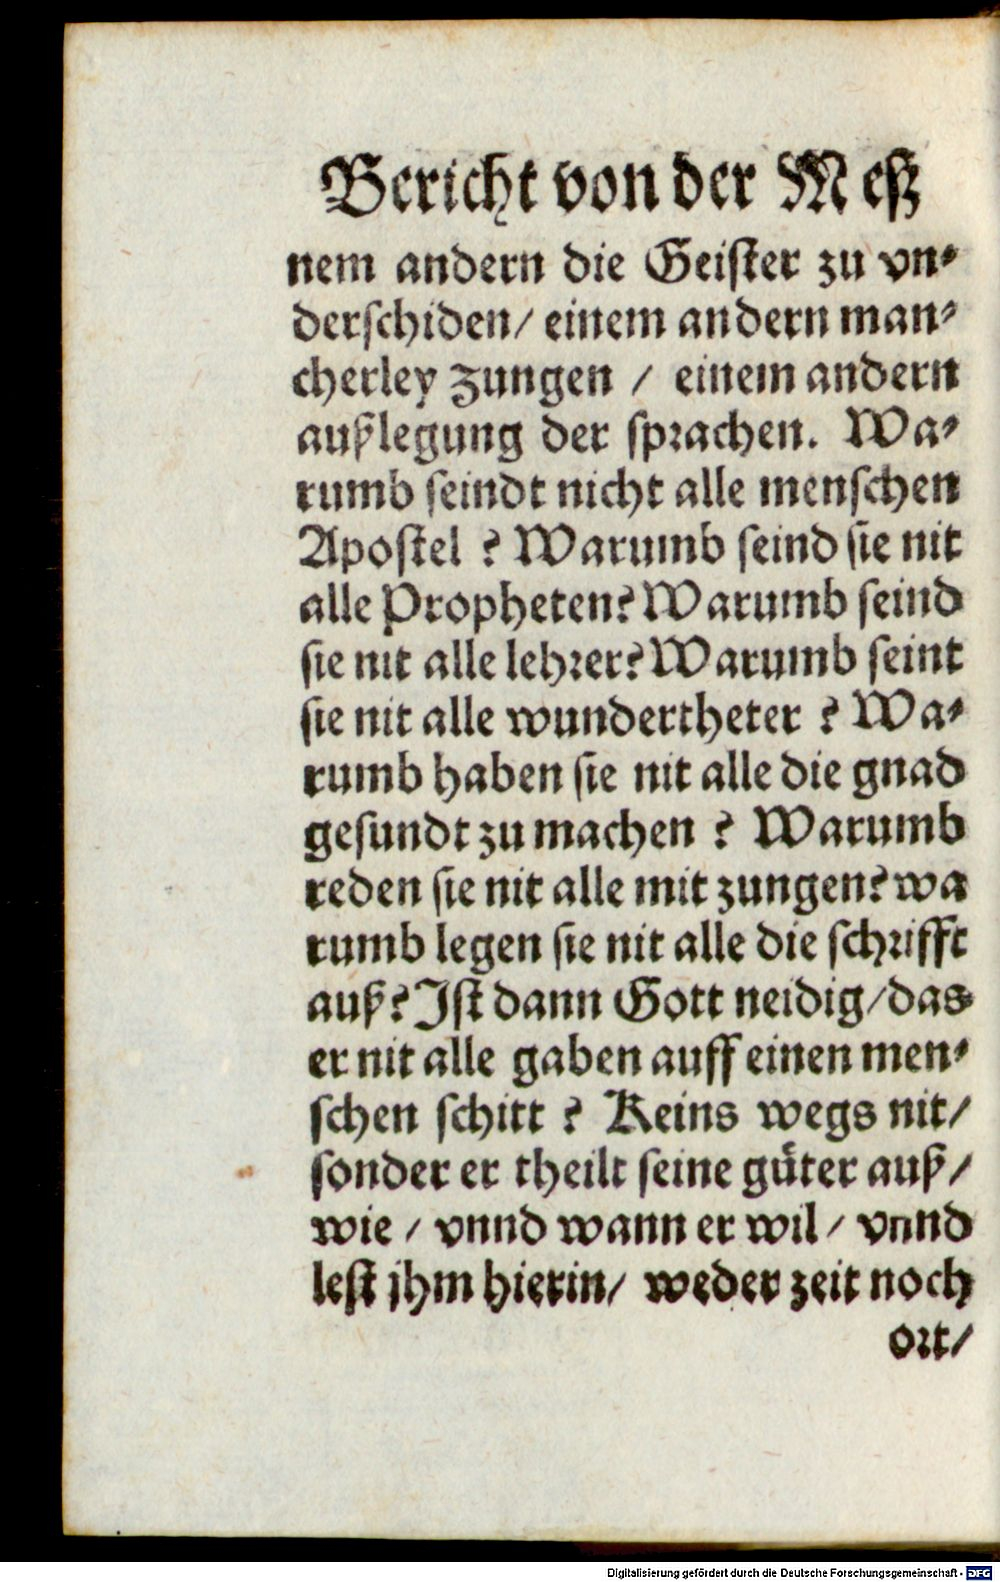 Bericht von der Meß
nem andern die Geister zu vn-
derschiden/ einem andern man-
cherley zungen / einem andern
außlegung der sprachen. Wa-
rumb seindt nicht alle menschen
Apostel ? Warumb seind sie nit
alle Propheten? Warumb seind
sie nit alle lehrer? Warumb seint
sie nit alle wundertheter ? Wa-
rumb haben sie nit alle die gnad
gesundt zu machen ? Warumb
reden sie nit alle mit zungen? wa
rumb legen sie nit alle die schrifft
auß? Ist dann Gott neidig/das
er nit alle gaben auff einen men-
schen schitt ? Keins wegs nit/
sonder er theilt seine güter auß/
wie / vnnd wann er wil / vnnd
lest jhm hierin/ weder zeit noch
ort/
Digitalisierung gefördert durch die Deutsche Forschungsgemeinschaft - DFG